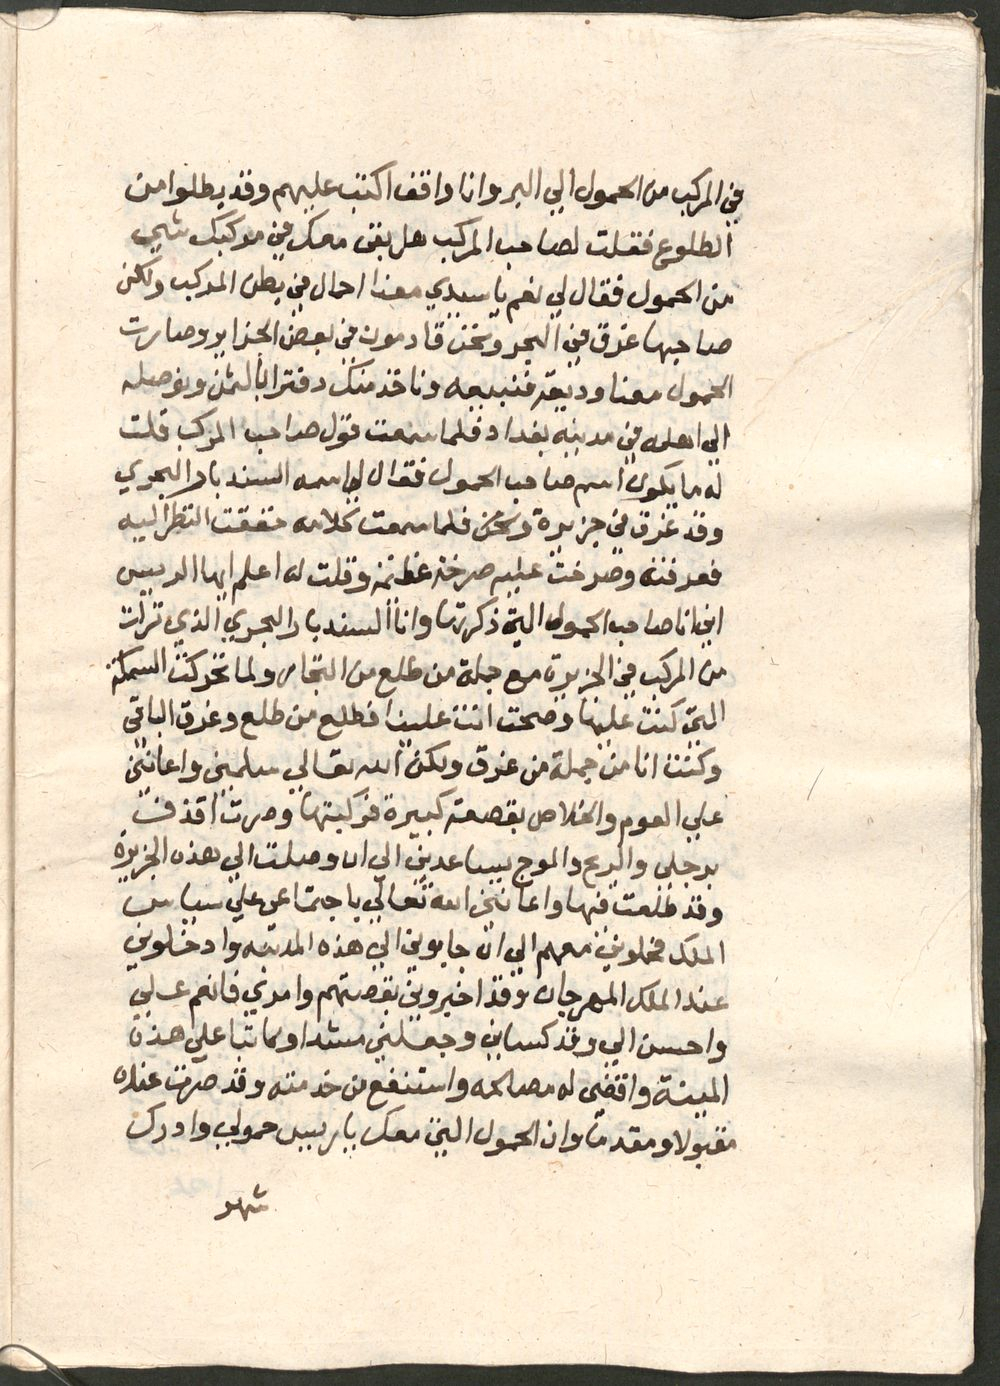 في المركب من الحمول الي البر وانا واقف اكتب عليهم وقد بطلوا من
الطلوع فقلت لصاحب المركب هل بقى معك في مركبك شي
من الحمول فقال لي نعم يا سيدي معنا احمال في بطن المركب ولكن
صاحبها غرق في البحر ونحن قادمون في بعض الجزاير وصارت
الحمول معنا وديعة فنبيعه وناخذ منك دفترا بالثمن ونوصله
الي اهله في مدينة بغداد فلما سمعت قول صاحب المركب قلت
له ما يكون اسم صاحب الحمول فقال لي اسمه السندباد البحري
وقد غرق في جزيرة ونحن فلما سمعت كلامه حققت النظر اليه
فعرفته وصرخت عليه صرخة عظيمة وقلت له اعلم ايها الرييس
اني انا صاحب الحمول التي ذكرتها وانا السندباد البحري الذي نزلت
من المركب في الجزيرة مع جملة من طلع من التجار ولما تحركت السمكة
التي كنت عليها وصحت انت علينا فطلع من طلع وغرق الباقي
وكنت انا من جملة من غرق ولكن الله تعالي سلمني واعانني
علي العوم والخلاص بقصعة كبيرة فركبتها وصرت اقذف
برجلي والريح والموج يساعدني الي ان وصلت الي هذه الجزيرة
وقد طلعت فيها واعانني الله تعالي باجتماعي علي سياس
الملك فحملوني معهم الي ان جابوني الي هذه المدينة وادخلوني
عند الملك المهرجان وقد اخبروني بقصتهم وامري فانعم علي
واحسن الي وقد كساني وجعلني مشدا وكاتبا علي هذه
المينة واقضي له مصالحه واستنفع من خدمته وقد صرت عنده
مقبولا ومقدما وان الحمول التي معك يا رييس حمولي وادرك
شهر